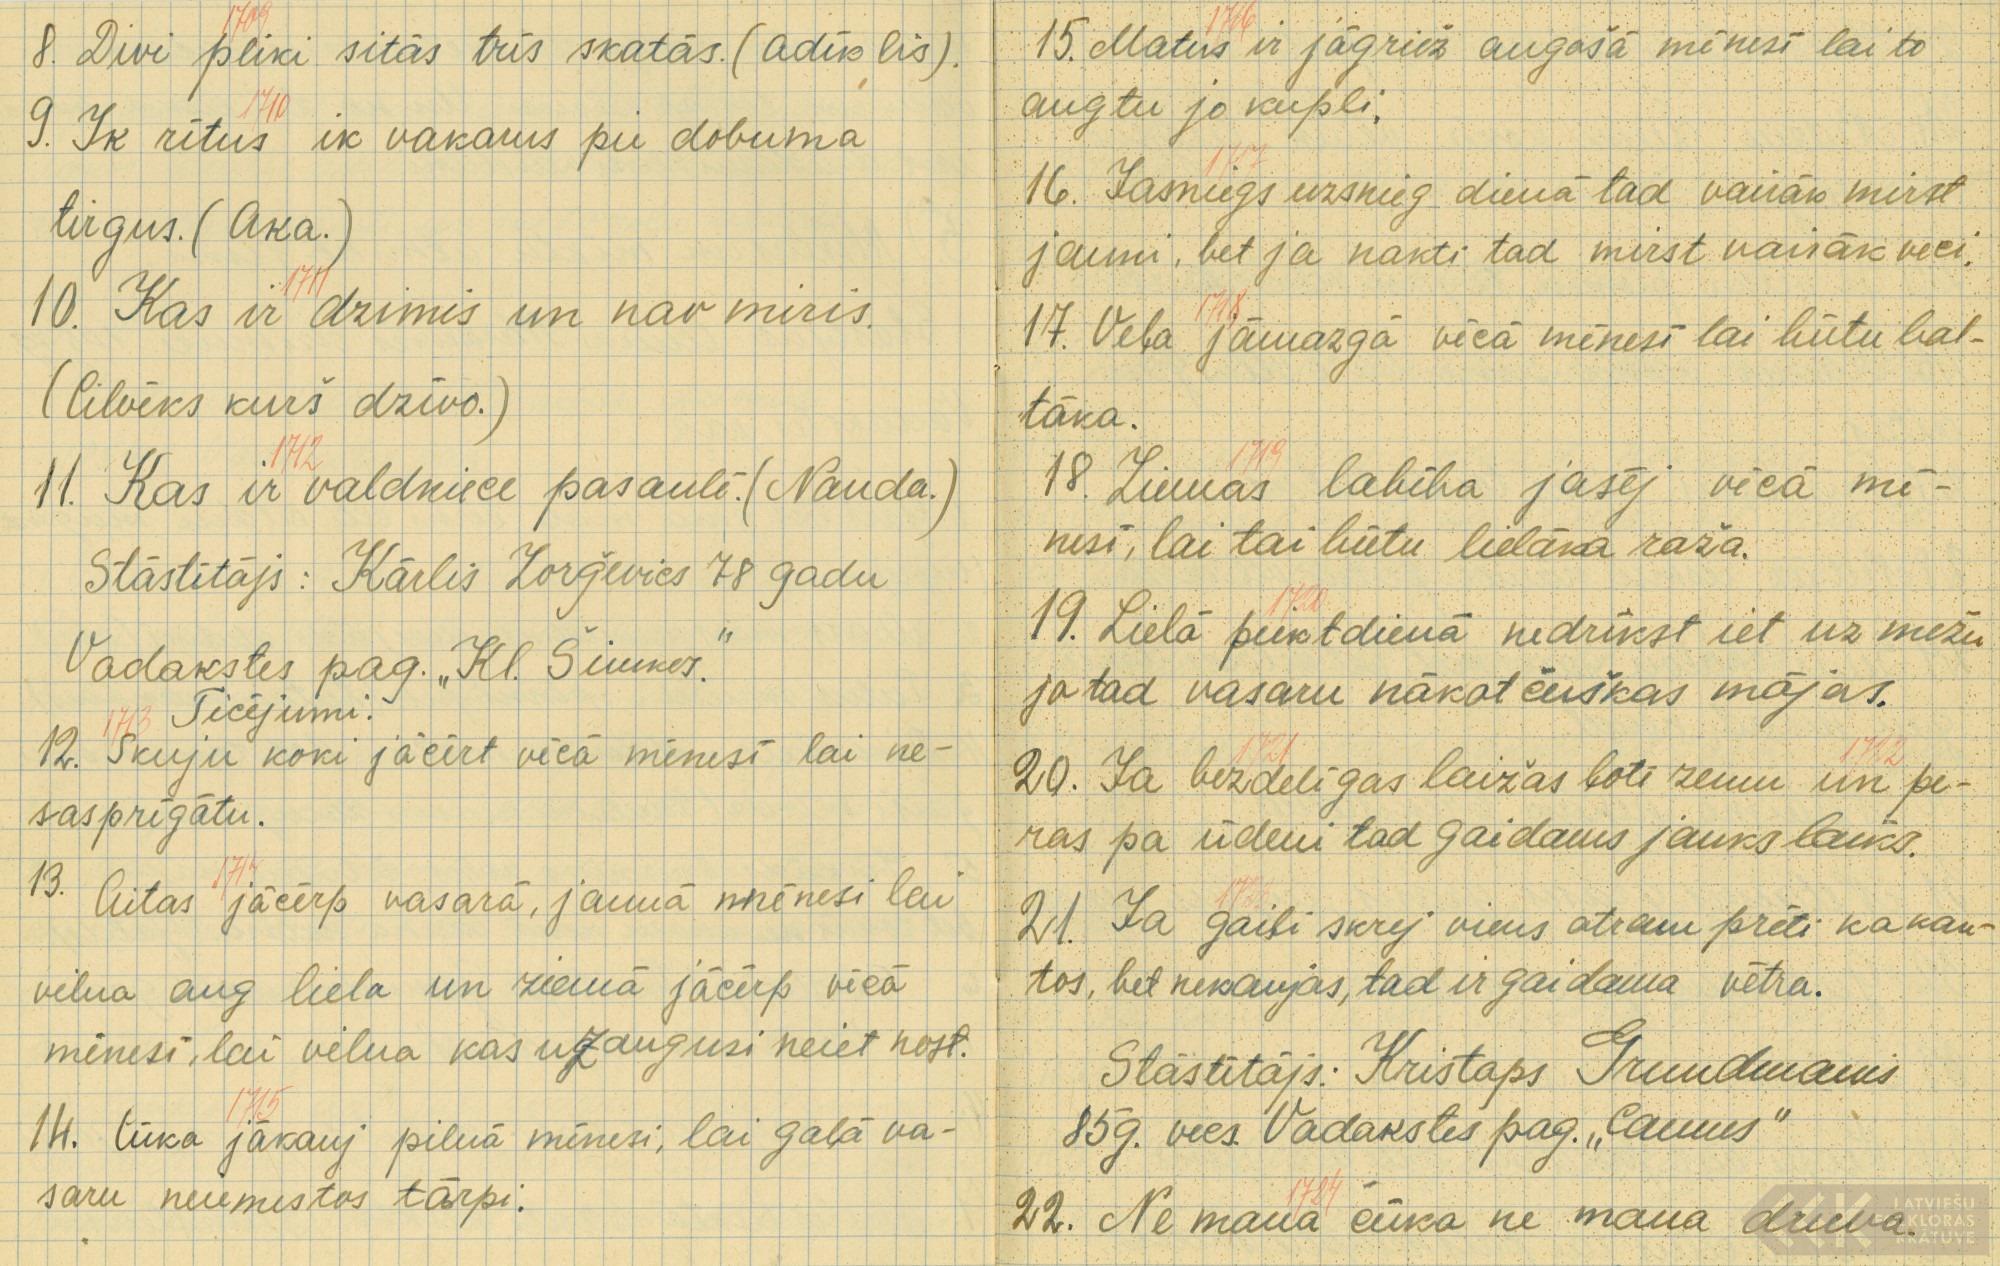 1709
8. Divi pliki sitās trīs skatās. (Adīklis).
1710
9. Ik rītus ik vakarus pie dobuma
tirgus. (Aka.)
1711
10. Kas ir dzimis un nav miris.
(Cilvēks kurš dzīvo.)
1712
11. Kas ir valdniece pasaulē. (Nauda.)
Stāstītājs: Kārlis Zorģevics 78 gadu
Vadakstes pag. „Kl. Šimkos."
Ticējumi.
1713
12. Skuju koki jācērt vēcā mēnesī lai ne-
sasprēgātu.
1714
13. Aitas jācērp vasarā, jaunā mēnesi lai
vilna aug liela un ziemā jācērp vecā
mēnesi, lai vilna kas uzaugusi neiet nost.
1715
14. Cūka jākauj pilnā mēnesi, lai gaļā va-
saru neiemestos tārpi.
1716
15. Matus ir jāgriež augošā mēnesī lai to
augtu jo kupli.
1717
16. Ja sniegs uzsnieg dienā tad vairāk mirst
jauni, bet ja nakti tad mirst vairāk veci.
1718
17. Veļa jāmazgā vēcā mēnesī lai būtu bal-
tāka.
1719
18. Ziemas labība jasēj vēcā mē-
nesī, lai tai būtu lielāka raža.
1720
19. Lielā piektdienā nedrīkst iet uz mežu
jo tad vasaru nākot čuškas mājas.
1721 1722
20. Ja bezdelīgas laižas ļoti zemu un pe-
ras pa ūdeni tad gaidams jauks laiks.
21. Ja gaiļi skrej viens otram prēti ka kau-
tos, bet nekaujas, tad ir gaidama vētra.
Stāstītājs: Kristaps Grundmanis
85g. vecs. Vadakstes pag. „Caunes"
1724
22. Ne mana cūka ne mana druva.
LATVIEŠU
FOLKLORAS
KRĀTUVE